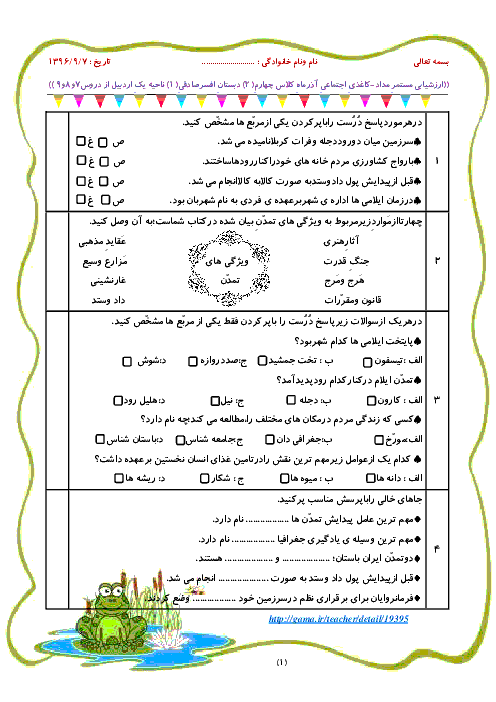 بسمه تعالی
نام ونام خانوادگی : ..........................
تاریخ : ۱۳۹۶/۹/۷
((ارزشیابی مستمر مداد-کاغذی اجتماعی آذرماه کلاس چهارم( ۲) دبستان افسرصادقی( ۱) ناحیه یک اردبیل از دروس۷و۸و۹ ))
۱
درهرموردپاسخ دُرُست راباپرکردن یکی ازمربّع ها مشخّص کنید.
♠سرزمین میان دورود دجله وفرات کربلانامیده می شد. ص غ
♠بارواج کشاورزی مردم خانه های خودراکناررودهاساختند. ص غ
♠قبل ازپیدایش پول دادوستدبه صورت کالابه کالاانجام می شد. ص غ
♠درزمان ایلامی ها اداره ی شهربرعهده ی فردی به نام شهربان بود. ص غ
۲
چهارتاازمَواردِزیرمربوط به ویژگی های تمدّن بیان شده درکتاب شماست؛به آن وصل کنید.
آثارهنری
عقاید مذهبی
جنگ قدرت
ویژگی های
مَزارع وسیع
هَرج ومَرج
تمدّن
غارنشینی
قانون ومقرّرات
داد وستد
۳
درهریک ازسوالات زیرپاسخ دُرُست را باپرکردن فقط یکی از مربّع ها مشخّص کنید.
♠پایتخت ایلامی ها کدام شهربود؟
الف :تیسفون ب : تخت جمشید ج:صددروازه د:شوش
♠تمدّن ایلام درکنارکدام رودپدیدآمد؟
الف : کارون ب: دجله ج: نیل د:هلیل رود
♠کسی که زندگی مردم درمکان های مختلف را،مطالعه می کند؛چه نام دارد؟
الف:مورّخ ب:جغرافی دان ج:جامعه شناس د:باستان شناس
♠ کدام یک ازعوامل زیرمهم ترین نقش رادرتامین غذای انسان نخستین برعهده داشت؟
الف : دانه ها ب: میوه ها ج : شکار د: ریشه ها
۴
جاهای خالی راباپرسش مناسب پرکنید.
♦مهم ترین عامل پیدایش تمدّن ها ................. نام دارد.
♦مهم ترین وسیله ی یادگیری جغرافیا ................. نام دارد.
♦دوتمدّن ایران باستان؛ ................... و ................... هستند.
♦قبل ازپیدایش پول داد وستد به صورت .................... انجام می شد.
♦فرمانروایان برای برقراری نظم درسرزمین خود ................. وضع کردند.
http://gama.ir/teacher/detail/19395
(۱)